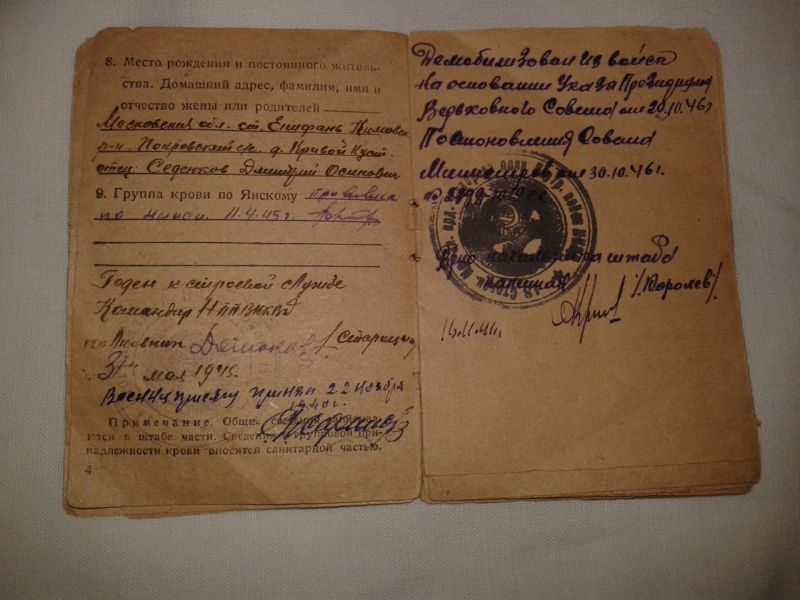 8. Место рождения и постоянного житель-
ства. Домашний адрес, фамилия, имя и
отчество жены или родителей
Московская обл. ст. Епифань Кимовск
р-н. Покровский с/с. д. Кривой Куст.
отец Седенков Дмитрий Осипович
9. Группа крови по Янскому
11.4.45г.
Годен к строевой службе
Командир НКВД
31 мая 1945.
Военную присягу принял 22 ноября
1940г.
Примечание. Общие сведения
ются в штабе части. Сведения о групповой при-
надлежности крови вносятся санитарной частью.
4
Демобилизован из войск
на основании Указа Президиума
Верховного Совета от 20.10.46г
Постоновления Совета
Министров от 30.10.46г.
штаба
капитан /Королев/